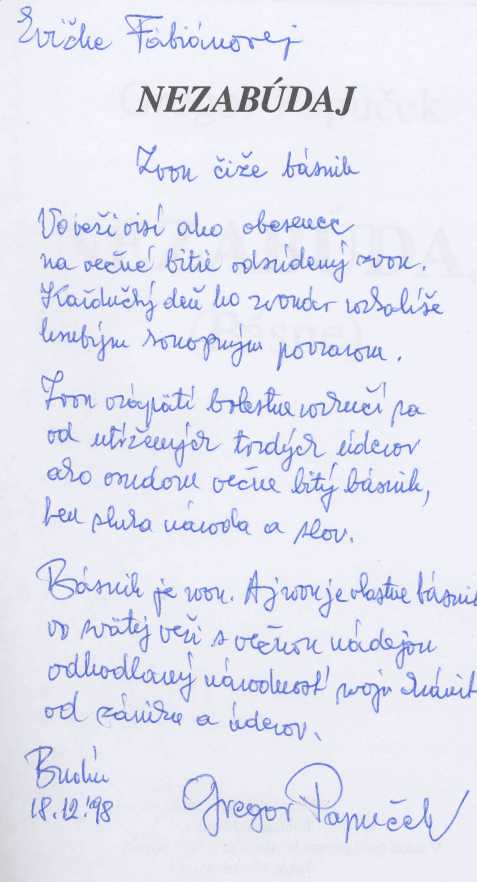 Evičke Fábiánovej
NEZABÚDAJ
Zvon čiže básnik
Vo veži visí ako obesenec
na večné bitie odsúdený zvon.
Každučký deň ho zvonár rozkolíše
hrubým konopným povrazom.
Zvon vzápätí bolestne rozvučí sa
od utŕžených tvrdých úderov
ako osudom večne bitý básnik,
ten sluha národa a slov.
Básnik je zvon. Aj zvon je vlastne básnik
vo svätej veži s večnou nádejou
odhodlaný národnosť svoju chrániť
od zániku a úderov.
Budín
18.12.'98
Gregor Papuček